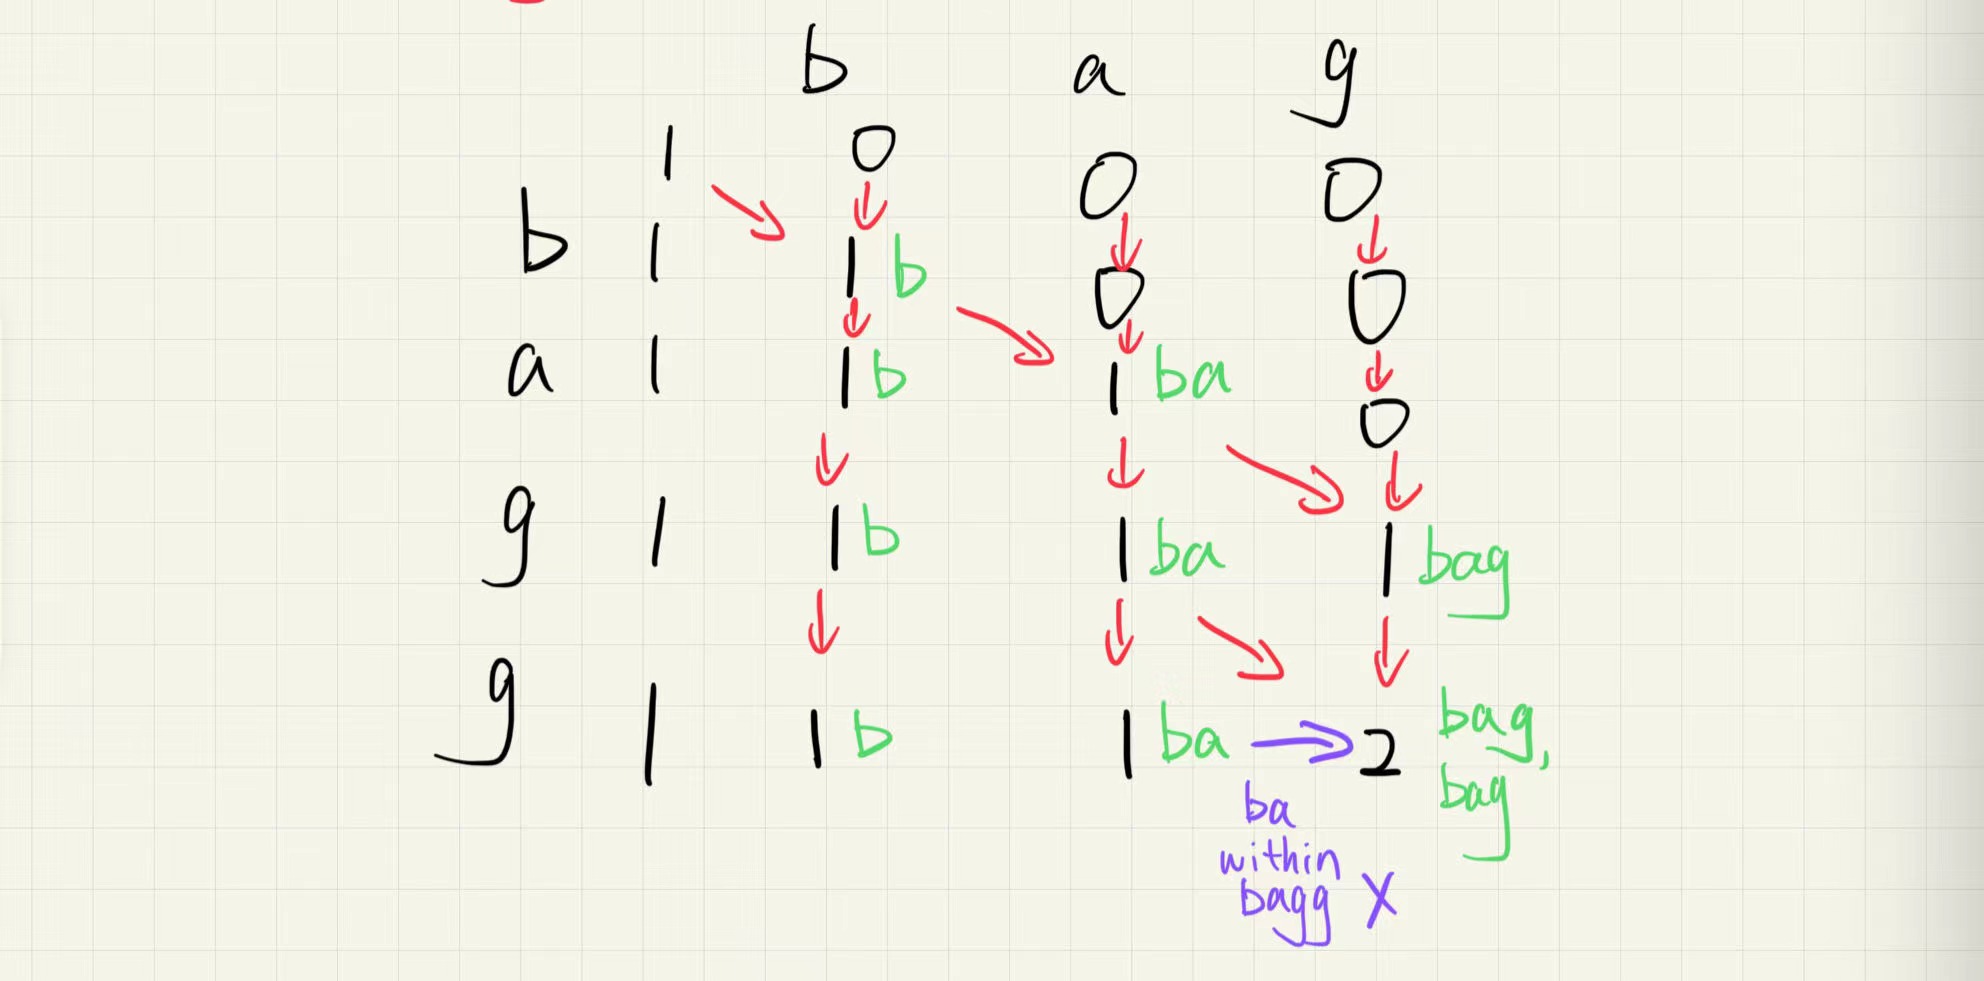 b a g
1 0 0 0
b 1 1 b 0 0
a 1 1 b 1 ba 0
g 1 1 b 1 ba 1 bag
g 1 1 b 1 ba 2 bag,
bag
ba
within
bagg X